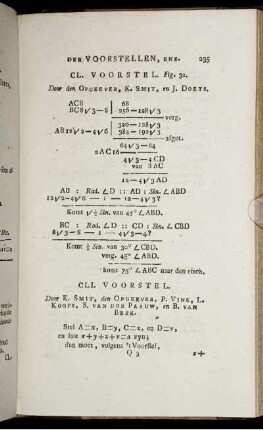 DER VOORSTELLEN, ENZ. 235
CL. VOORSTEL. Fig. 32.
Door den OPGEEVER, K. SMIT, en J. DOETS.
AC8 | 68
BC8√3—8 | 256—128√3
verg.
320—128√3
AB12√2—4√6 | 384—192√3
afget.
64√3—64
2AC16
4√3—4 CD
van 8 AC
12—4√3 AD
AB : Rad. ∠D :: AD : Sin. ∠ABD
12√2—4√6 — 1 — 12—4√3?
Komt √½ Sin. van 45° ∠ABD.
BC : Rad. ∠D :: CD : Sin. ∠CBD
8√3—8 — 1 — 4√3—4?
Komt ½ Sin. van 30° ∠CBD.
verg. 45° ∠ABD.
koms 75° ∠ABC naar den eisch.
CLI. VOORSTEL.
Door K. SMIT, den OPGEEVER, P. VINK, L.
KOOPS, S. VAN DER PAAUW, en B. VAN
BEEK.
Stel A=x, B=y, C=z, en D=v,
en laat x+y+z+v=a zyn;
dan moet, volgens 't Voorstel,
Q 3 x+